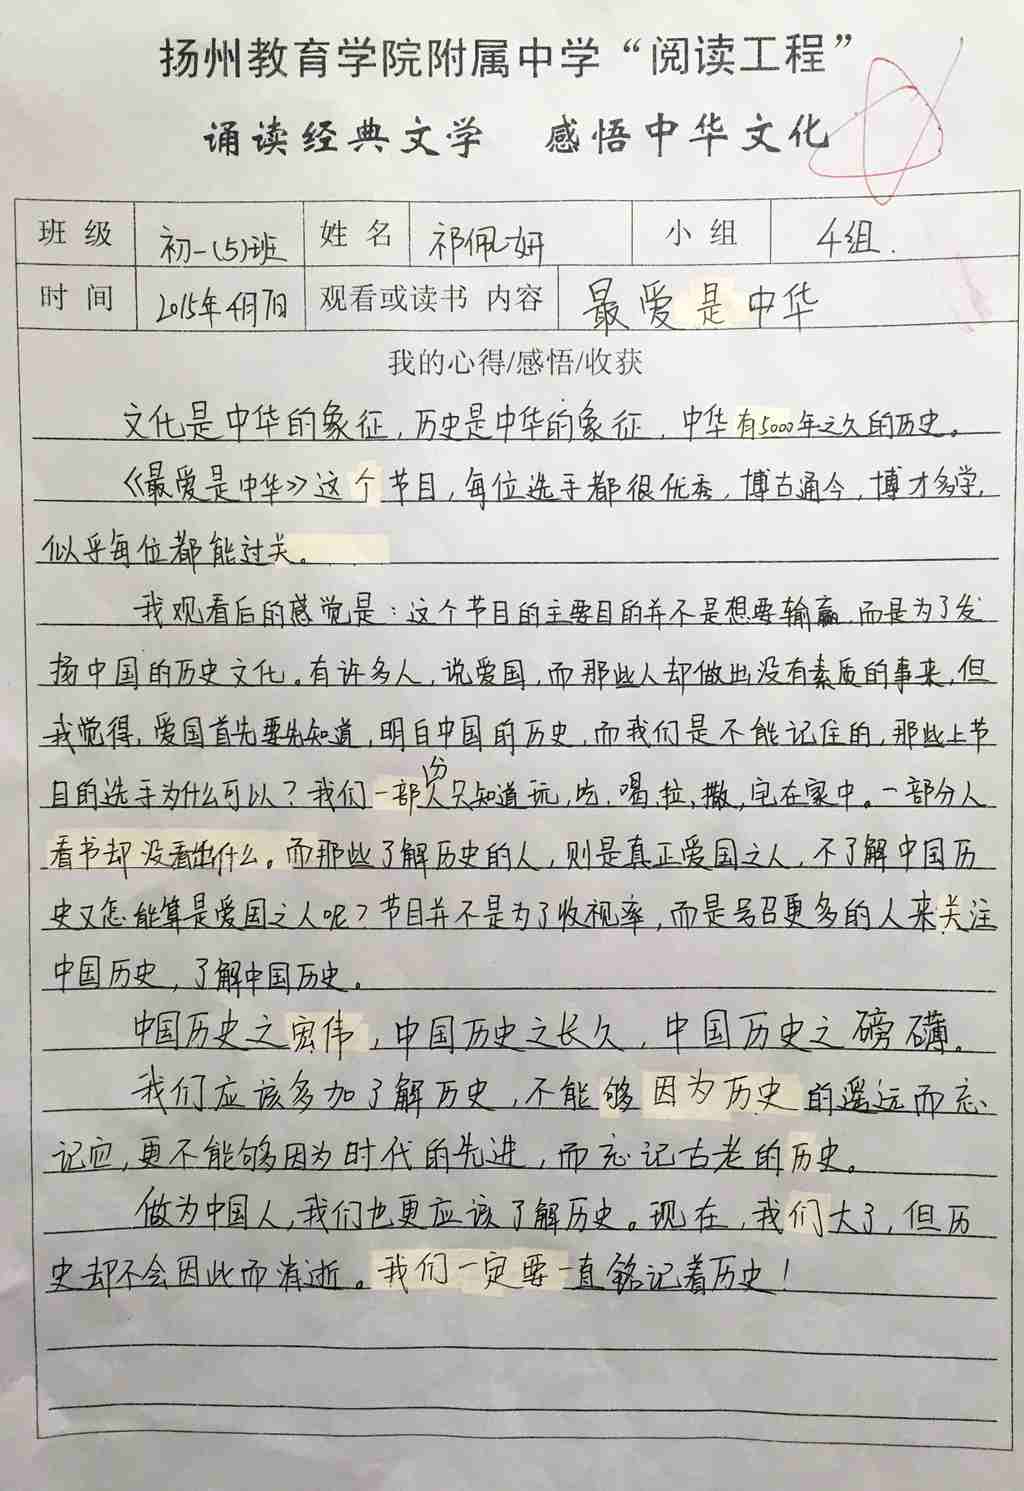 扬州教育学院附属中学“阅读工程”
诵读经典文学 感悟中华文化
班级 初一(5)班 姓名 祁佩妍 小组 4组.
时间 2015年4月7日 观看或读书 内容 最爱是中华
我的心得/感悟/收获
文化是中华的象征，历史是中华的象征，中华有5000年之久的历史。
《最爱是中华》这个节目，每位选手都很优秀，博古通今，博才多学，
似乎每位都能过关。
我观看后的感觉是：这个节目的主要目的并不是想要输赢，而是为了发
扬中国的历史文化。有许多人，说爱国，而那些人却做出没有素质的事来，但
我觉得，爱国首先要先知道，明白中国的历史，而我们是不能记住的，那些上节
目的选手为什么可以？我们一部份人只知道玩，吃，喝，拉，撒，宅在家中。一部分人
看书却没看出什么。而那些了解历史的人，则是真正爱国之人，不了解中国历
史又怎能算是爱国之人呢？节目并不是为了收视率，而是号召更多的人来关注
中国历史，了解中国历史。
中国历史之宏伟，中国历史之长久，中国历史之磅礴。
我们应该多加了解历史，不能够因为历史的遥远而忘
记它，更不能够因为时代的先进，而忘记古老的历史。
做为中国人，我们也更应该了解历史。现在，我们大了，但历
史却不会因此而消逝。我们一定要一直铭记着历史！